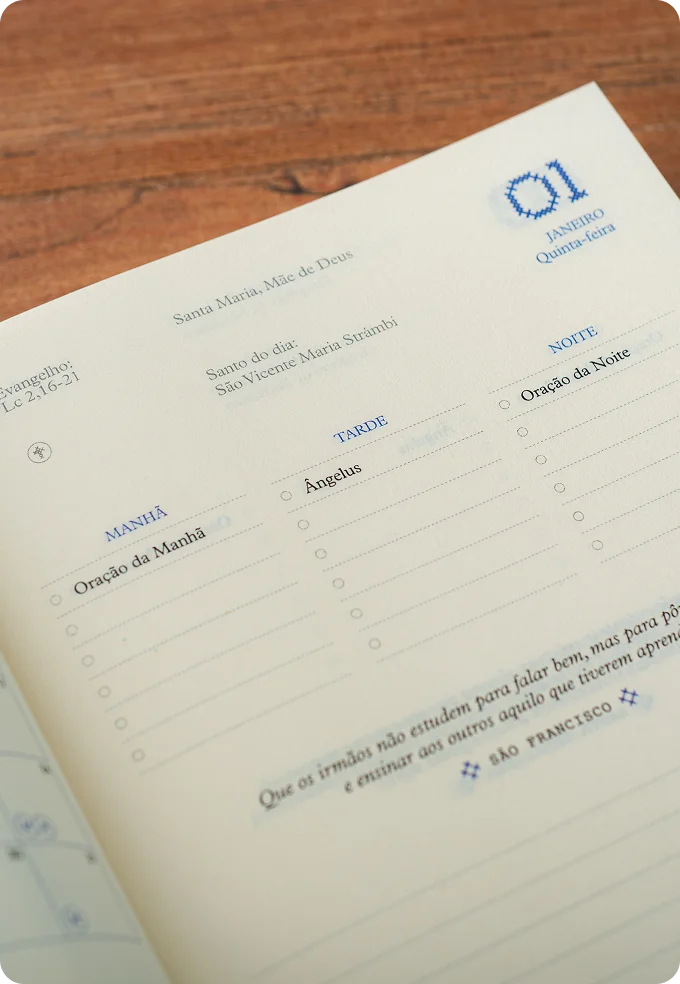 01
JANEIRO
Quinta-feira
Santa Maria, Mãe de Deus
Evangelho:
Lc 2,16-21
Santo do dia:
São Vicente Maria Strámbi
MANHÃ
Oração da Manhã
TARDE
Ângelus
NOITE
Oração da Noite
Que os irmãos não estudem para falar bem, mas para
e ensinar aos outros aquilo que tiverem
SÃO FRANCISCO